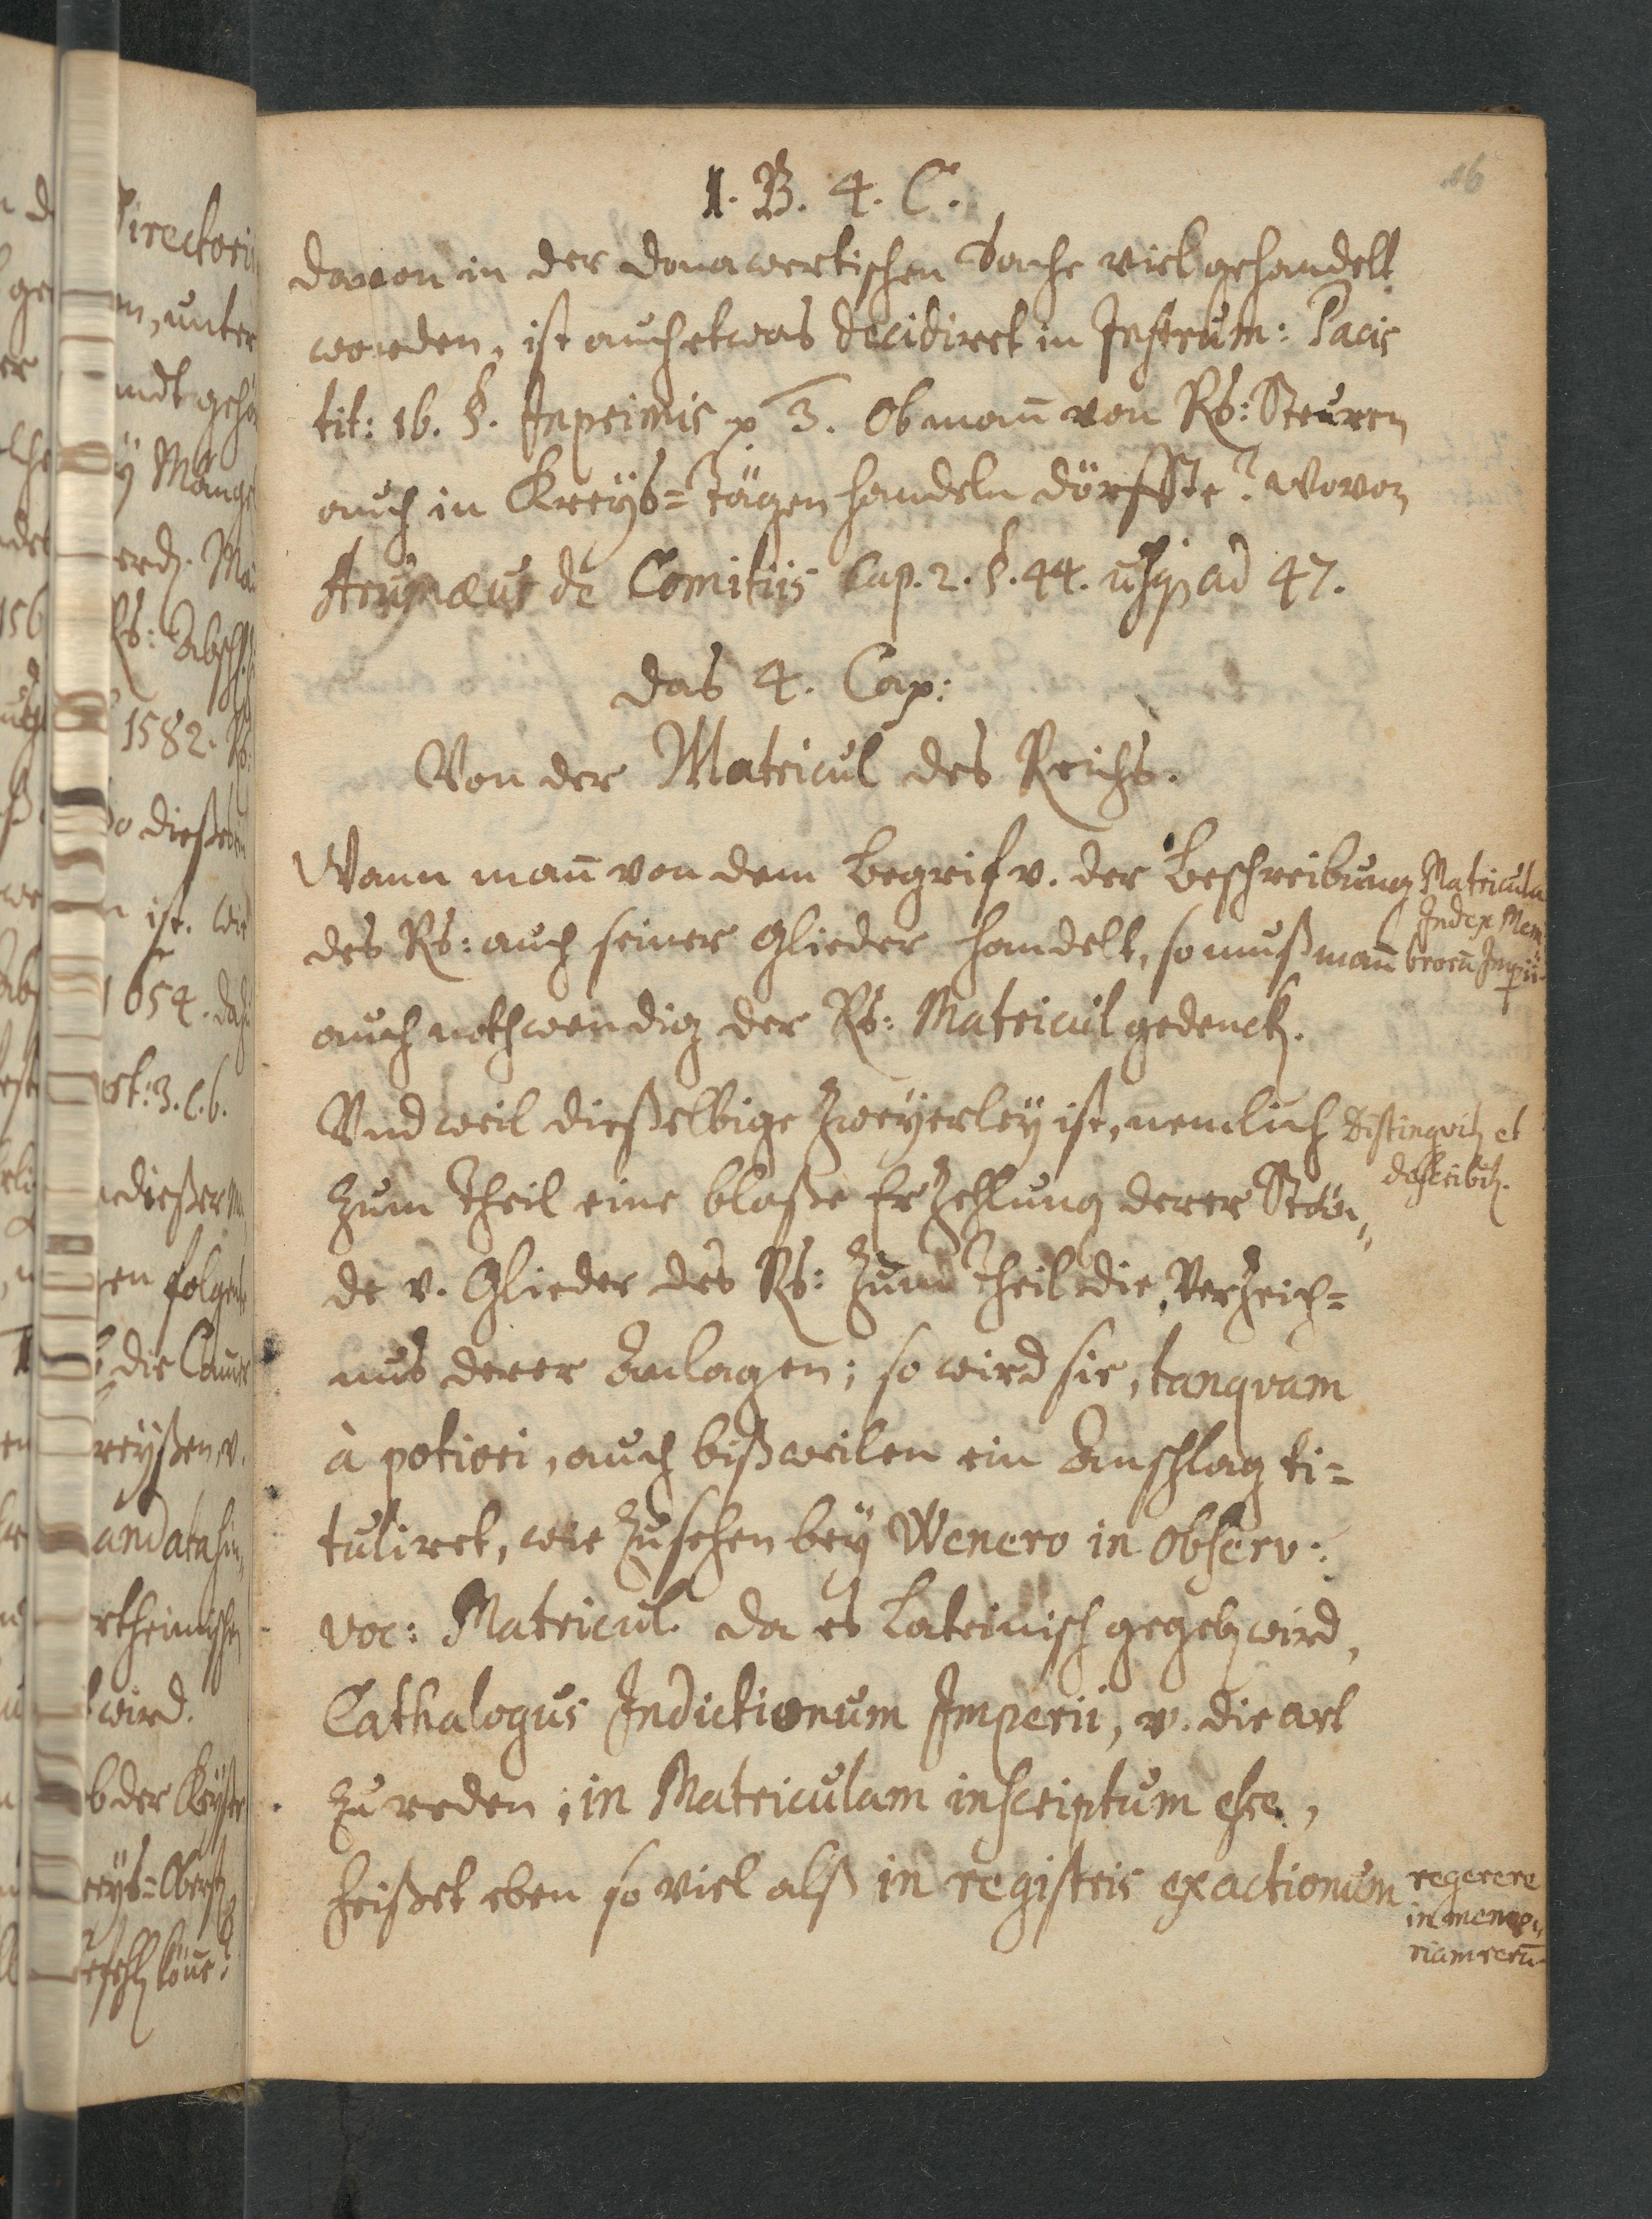 16
1. B. 4. C.
davon in der donawertischen Sache viel gehandelt
worden, ist auch etwas decidiret in Instrum: Pacis
tit: 16. §. Inprimis p 3. Ob man̄ von Rs: Steuren
auch in Kreÿs=Tägen handeln dörffte? wovon
Arumaeus de Comitiis Cap. 2. §. 44. usq ad 47.
Das 4. Cap:
Von der Matricul des Reichs.
Wann man̄ von dem Begrif v. der Beschreibung
des Rs: auch seiner Glieder handelt, so muß man̄
auch nothwendig der Rs: Matricul gedenck.
Und weil dießelbige zweÿerleÿ ist, nemlich
zum theil eine bloße Erzehlung derer Stän„
de v. Glieder des Rs: zum theil die Verzeich=
nus derer Anlagen; so wird sie, tanqvam
à potiori, auch bißweilen ein Anschlag ti=
tuliret, wie zu sehen beÿ Wenero in observ:
voc: Matricul. da es Lateinisch gegeb wird,
Cathalogus Indictionum Imperii, v. die art
zu reden, in Matriculam inscriptum esse,
heißet eben so viel alß in registris exactionum
Matricula
Index Mem
brorū Imperii
distingvitʒ et
describitʒ.
regerere
in memo„
riam rerū
Directori
en, unter
ndt gehö
ÿ Mange
Rs: Absch
1582. Rs:
so dießelben
n ist. wie
1654. das
st: 3. c. 6.
dießer
en folgende
die Camer
reÿßen, v.
andata hin„
rtheinischen
wird.
b der Keÿser
reÿs=Obrst
efehl könne?